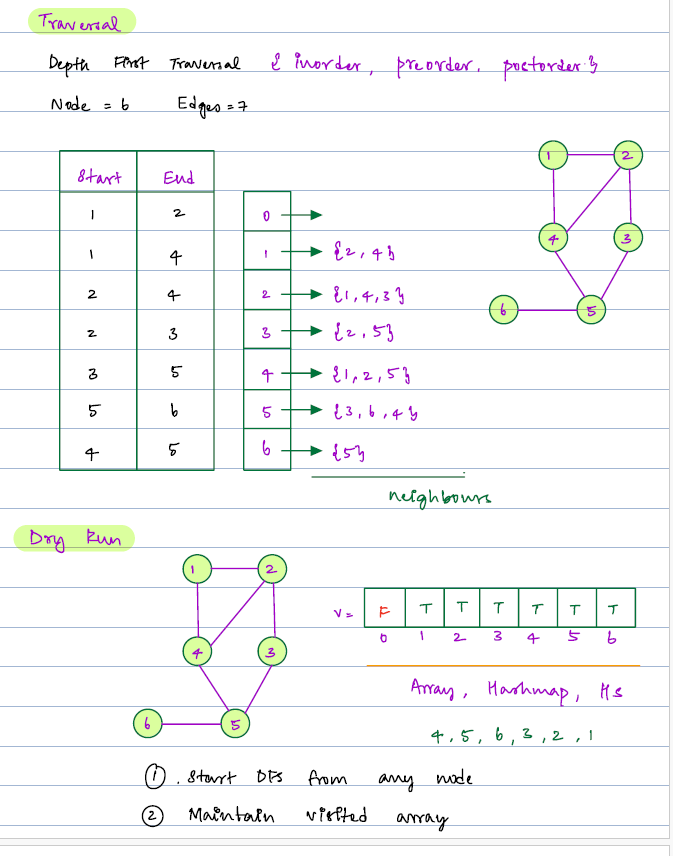 Traversal
Depth First Traversal { inorder, preorder, postorder }
Node = 6 Edges = 7
Start End
1 2
1 4
2 4
2 3
3 5
5 6
4 5
0 →
1 → {2, 4}
2 → {1, 4, 3}
3 → {2, 5}
4 → {1, 2, 5}
5 → {3, 6, 4}
6 → {5}
neighbours
1 2
4 3
6 5
Dry Run
1 2
4 3
6 5
V = F T T T T T T
0 1 2 3 4 5 6
Array, Hashmap, Hs
4, 5, 6, 3, 2, 1
① . Start DFS from any node
② Maintain visited array